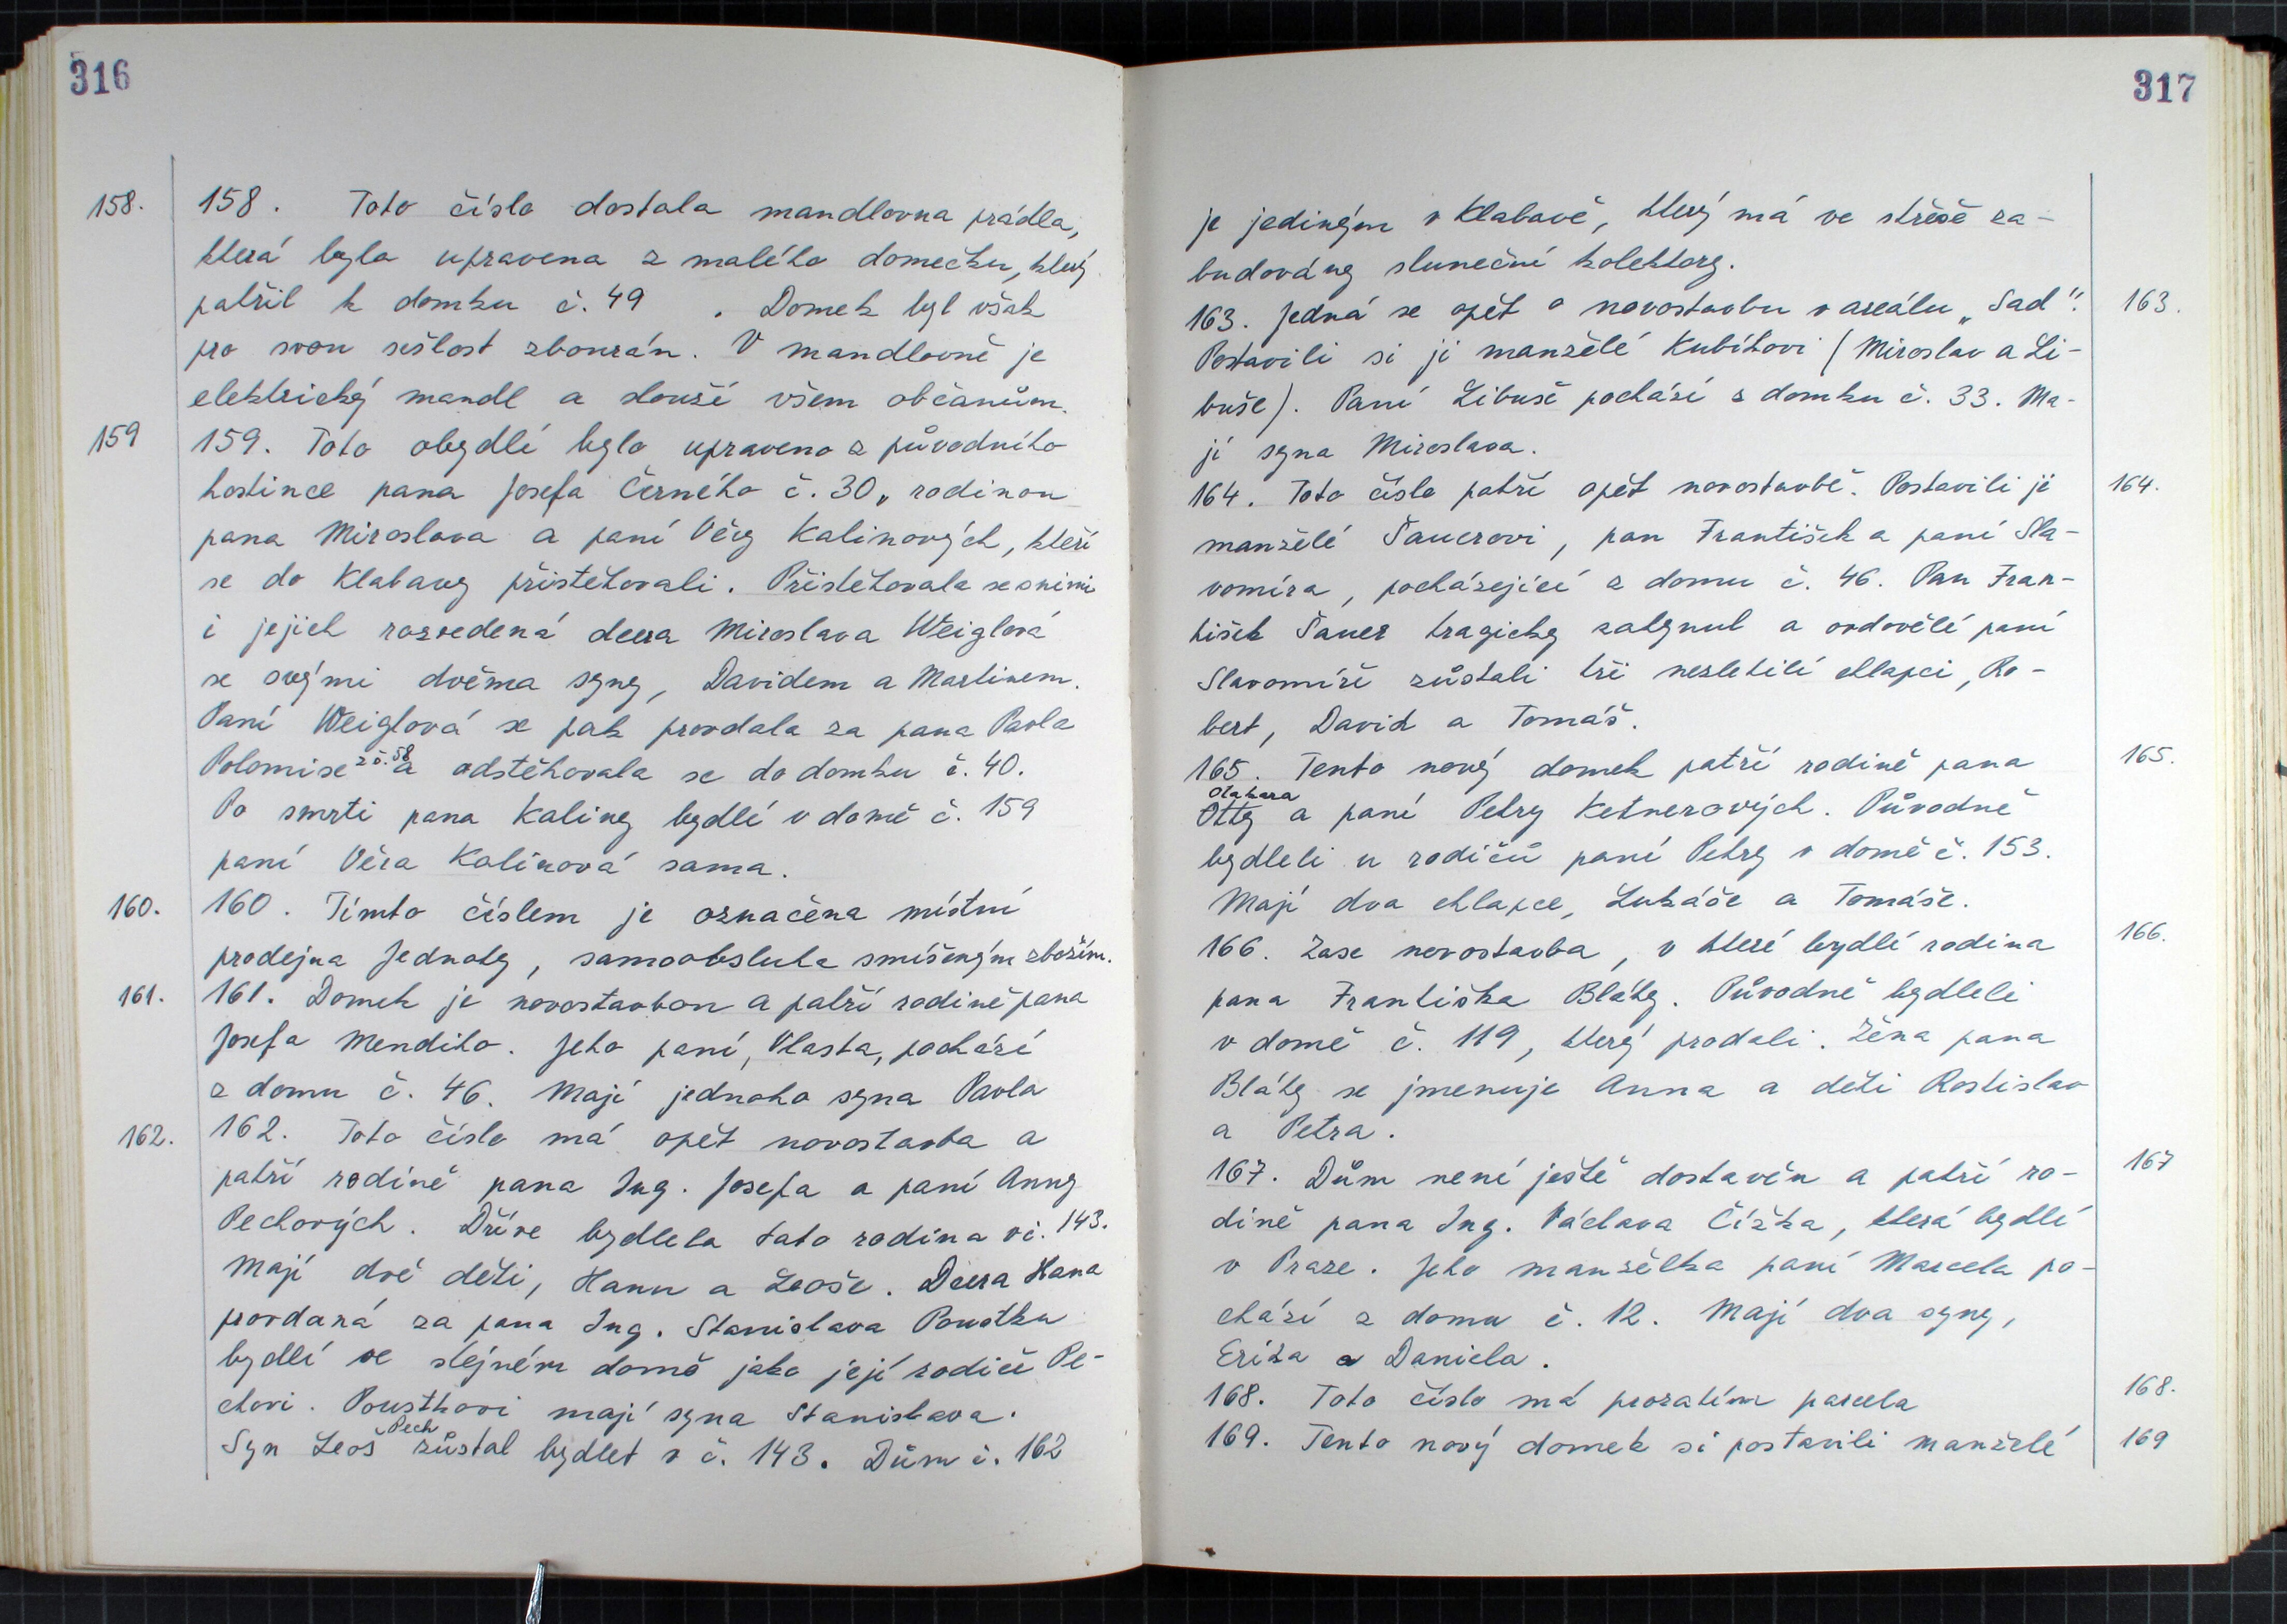 316
158.
158. Toto číslo dostala mandlovna prádla,
která byla upravena z malého domečku, který
patřil k domku č. 49 . Domek byl však
pro svou sešlost zbourán. V mandlovně je
elektrický mandl a slouží všem občanům.
159
159. Toto obydlí bylo upraveno z původního
hostince pana Josefa Černého č. 30, rodinou
pana Miroslava a paní Věry Kalinových, kteří
se do Klabavy přistěhovali. Přistěhovala se s nimi
i jejich rozvedená dcera Miroslava Weiglová
se svými dvěma syny, Davidem a Martinem.
Paní Weiglová se pak provdala za pana Pavla
Polomise z č. 58 a odstěhovala se do domku č. 40.
Po smrti pana Kaliny bydlí v domě č. 159
paní Věra Kalinová sama.
160.
160. Tímto číslem je označena místní
prodejna Jednoty, samoobsluha smíšeným zbožím.
161.
161. Domek je novostavbou a patří rodině pana
Josefa Mendiho. Jeho paní, Vlasta, pochází
z domu č. 46. Mají jednoho syna Pavla
162.
162. Toto číslo má opět novostavba a
patří rodině pana Ing. Josefa a paní Anny
Pechových. Dříve bydlela tato rodina v č. 143.
Mají dvě děti, Hanu a Leoše. Dcera Hana
provdaná za pana Ing. Stanislava Poustku
bydlí ve stejném domě jako její rodiče Pe-
chovi. Poustkovi mají syna Stanislava.
Syn Leoš Pech zůstal bydlet v č. 143. Dům č. 162
317
je jediným v Klabavě, který má ve střeše za-
budovány sluneční kolektory.
163. Jedná se opět o novostavbu v areálu „Sad“.
163.
Postavili si ji manželé Kubíkovi (Miroslav a Li-
buše). Paní Libuše pochází z domku č. 33. Ma-
jí syna Miroslava.
164. Toto číslo patří opět novostavbě. Postavili ji
164.
manželé Šauerovi, pan František a paní Sla-
vomíra, pocházející z domu č. 46. Pan Fran-
tišek Šauer tragicky zahynul a ovdovělé paní
Slavomíře zůstali tři nezletilí chlapci, Ro-
bert, David a Tomáš.
165. Tento nový domek patří rodině pana
165.
Otakara
Otty a paní Petry Ketnerových. Původně
bydleli u rodičů paní Petry v domě č. 153.
Mají dva chlapce, Lukáše a Tomáše.
166. Zase novostavba, v které bydlí rodina
166.
pana Františka Bláhy. Původně bydleli
v domě č. 119, který prodali. Žena pana
Bláhy se jmenuje Anna a děti Rostislav
a Petra.
167. Dům není ještě dostavěn a patří ro-
167
dině pana Ing. Václava Čížka, která bydlí
v Praze. Jeho manželka paní Marcela po-
chází z domu č. 12. Mají dva syny,
Erika a Daniela.
168. Toto číslo má prozatím parcela
168.
169. Tento nový domek si postavili manželé
169